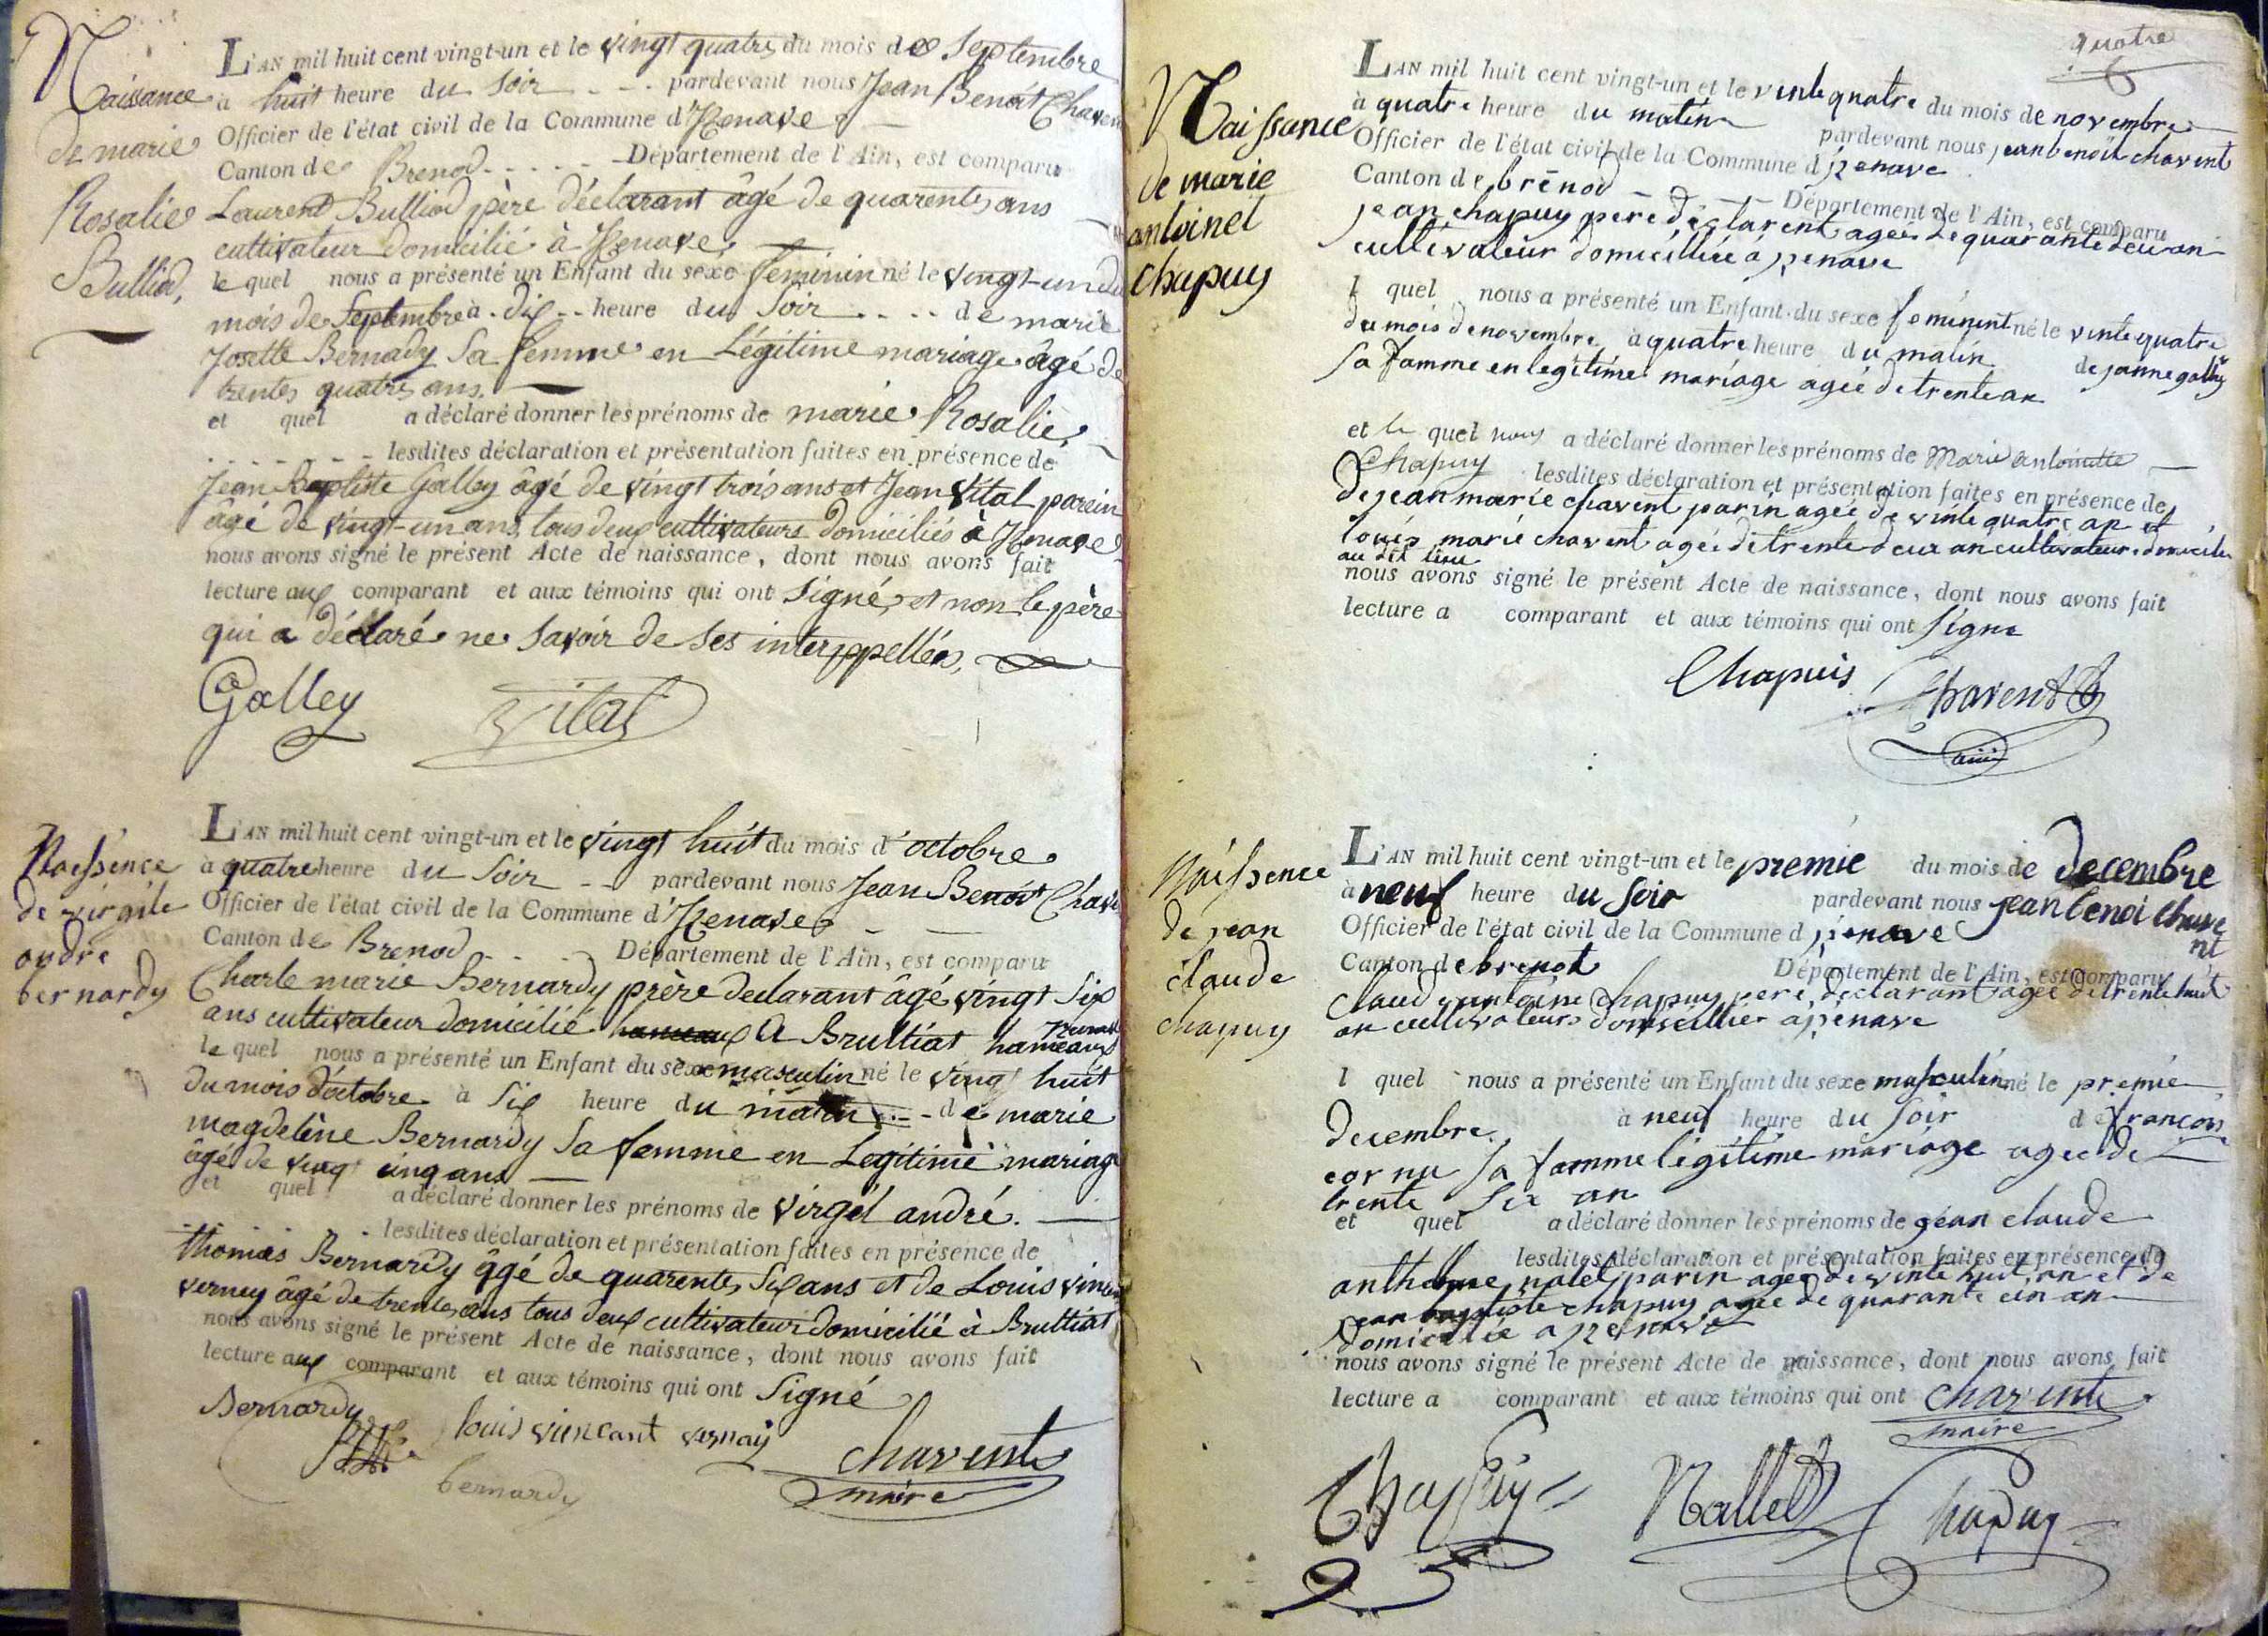 Naissance
de marie
Rosalie
Bulliod,
L'AN mil huit cent vingt-un et le vingt quatre du mois de Septembre
à huit heure du Soir - - - pardevant nous Jean Benoit Chaven
Officier de l'état civil de la Commune d'Izenave
Canton de Brenod - - - - Département de l'Ain, est comparu
Laurent Bulliod père déclarant âgé de quarente ans
cultivateur domicilié à Izenave,
le quel nous a présenté un Enfant du sexe feminin né le vingt-un du
mois de Septembre à - dix - - heure du Soir - - - - de marie
Josette Bernady Sa femme en Légitime mariage âgé de
trente quatre ans.
et quel a déclaré donner les prénoms de marie Rosalie,
- - - - - - - lesdites déclaration et présentation faites en présence de
Jean Baptiste Galley âgé de vingt trois ans et Jean Vital parein
âgé de vingt-un ans, tous deux cultivateurs domiciliés à Izenave
nous avons signé le présent Acte de naissance, dont nous avons fait
lecture aux comparant et aux témoins qui ont Signé, et non le père
qui a déclaré ne Savoir de Ses interppellés,
Galley Vital
Naissence
de virgile
andre
bernardy
L'AN mil huit cent vingt-un et le vingt huit du mois d'octobre
à quatre heure du Soir - - pardevant nous Jean Benoit Chave
Officier de l'état civil de la Commune d'Izenave
Canton de Brenod - - - Département de l'Ain, est comparu
Charle marie Bernardy prère declarant âgé vingt Six
ans cultivateur domicilié hameaux A Brultiat hameaux
le quel nous a présenté un Enfant du sexe masculin né le vingt huit
du mois d'octobre à Six heure du matin - - de marie
magdelène Bernardy Sa femme en Legitime mariage
âgé de vingt cinq ans
et quel a déclaré donner les prénoms de virgél andré.
- lesdites déclaration et présentation faites en présence de
thomas Bernardy âgé de quarente Six ans et de Louis vincen
verney âgé de trente ans tous deux cultivateur domicilié à Brultiat
nous avons signé le présent Acte de naissance, dont nous avons fait
lecture aux comparant et aux témoins qui ont Signé
Bernardy louis vincant vernay
charent
bernardy maire
quatre
Naissance
de marie
antoinet
chapuy
L'AN mil huit cent vingt-un et le vinte quatre du mois de novembre
à quatre heure du matin pardevant nous jean benoit chavent
Officier de l'état civil de la Commune d izenave
Canton de brénod - - - Département de l'Ain, est comparu
jean chapuy père déclarent agée de quarante deu an
cultivateur domicilliée a izenave
l quel nous a présenté un Enfant du sexe feminint né le vinte quatre
du mois de novembre à quatre heure du matin de janne galley
Sa famme en legitime mariage agée de trente an
et le quel nous a déclaré donner les prénoms de Marie antoinette
Chapuy lesdites déclaration et présentation faites en présence de
de jean marie chavent parin agée de vinte quatre an et
louis marie chavent agée de trente deux an cultivateur domicilie
au dit lieu
nous avons signé le présent Acte de naissance, dont nous avons fait
lecture a comparant et aux témoins qui ont Signe
Chapuis Charent
Naissence
de jean
claude
chapuy
L'AN mil huit cent vingt-un et le premie du mois de decembre
à neuf heure du Soir pardevant nous jean benoi chave
nt
Officier de l'état civil de la Commune d izenave
Canton de brenod Département de l'Ain, est comparu
claud antoine chapuy pere declarant agée de trente huit
an cultivateur domicillier a izenave
l quel nous a présenté un Enfant du sexe masculin né le premie
decembre à neuf heure du Soir de françois
cornu Sa famme légitime mariage agee de
trente Six an
et quel a déclaré donner les prénoms de géan claude
lesdites déclaration et présentation faites en présence de
anthelme nalet parin agee de vinte huit an et de
jean baptiste chapuy agée de quarante cin an
domicilie a izenave
nous avons signé le présent Acte de naissance, dont nous avons fait
lecture a comparant et aux témoins qui ont charent
maire
Chapuy Nallet Chapuy